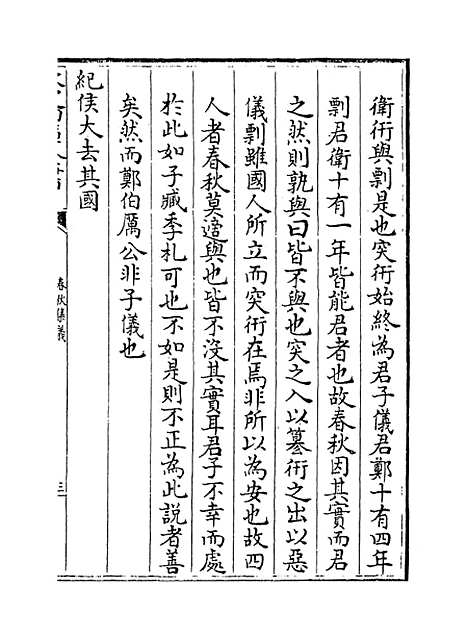 衛衎與剽是也突衎始終為君子儀君鄭十有四年
剽君衛十有一年皆能君者也故春秋因其實而君
之然則孰與曰皆不與也突之入以篡衎之出以惡
儀剽雖國人所立而突衎在焉非所以為安也故四
人者春秋莫適與也皆不没其實耳君子不幸而處
於此如子臧季札可也不如是則不正為此説者善
矣然而鄭伯厲公非子儀也
紀侯大去其國
春秋集義
三